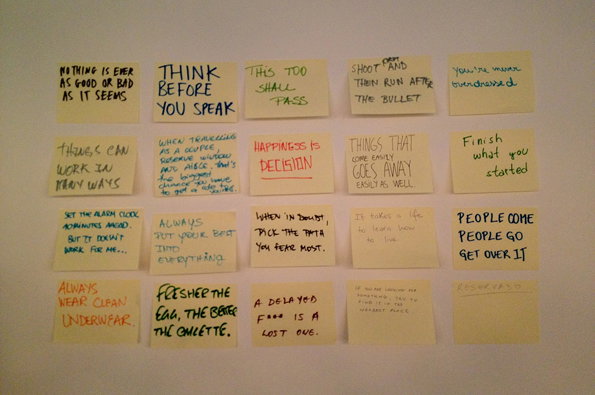 NOTHING IS EVER
AS GOOD OR BAD
AS IT SEEMS
THINK
BEFORE
YOU SPEAK
THIS TOO
SHALL
PASS
SHOOT FIRST AND
THEN RUN AFTER
THE BULLET
you're never
overdressed
THINGS CAN
WORK IN
MANY WAYS
WHEN TRAVELLING
AS A COUPLE,
RESERVE WINDOW
AND AISLE. that's
the biggest
chance you have
to get a
HAPPINESS IS
DECISION
THINGS THAT
COME EASILY
GOES AWAY
EASILY AS WELL.
Finish
what you
started
SET THE ALARM CLOCK
10 MINUTES AHEAD.
BUT IT DOESN'T
WORK FOR ME...
ALWAYS
PUT YOUR BEST
INTO
EVERYTHING
WHEN IN DOUBT,
PICK THE PATH
YOU FEAR MOST.
It takes a life
to learn how
to live.
PEOPLE COME
PEOPLE GO
GET OVER IT
ALWAYS
WEAR CLEAN
UNDERWEAR.
FRESHER THE
EGG, THE BETTER
THE OMLETTE.
A DELAYED
F*** IS A
LOST ONE.
IF YOU ARE LOOKING FOR
SOMETHING, TRY TO
FIND IT IN THE
PLACE
RESERVADO